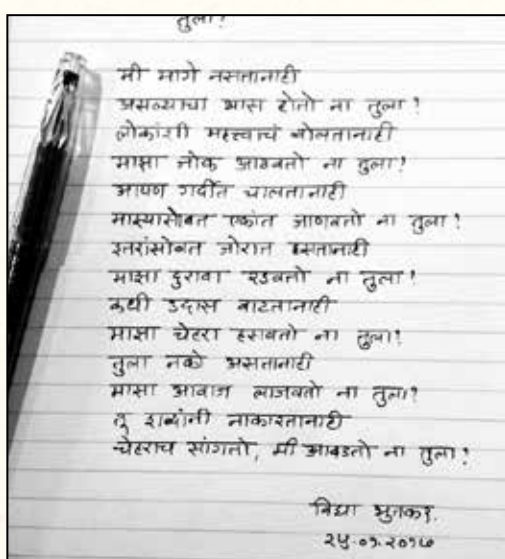 तुला?
मी मागे नसतानाही
असल्याचा भास होतो ना तुला?
लोकांशी महत्त्वाचं बोलतानाही
माझा जोक आठवतो ना तुला?
आपण गर्दीत चालतानाही
माझ्यासोबत एकांत जाणवतो ना तुला?
इतरांसोबत जोरात हसतानाही
माझा दुरावा रडवतो ना तुला?
कधी उदास वाटतानाही
माझा चेहरा हसवतो ना तुला?
तुला नको असतानाही
माझा आवाज लाजवतो ना तुला?
तू शब्दांनी नाकारतानाही
चेहराच सांगतो, मी आवडतो ना तुला?
विद्या भुतकर.